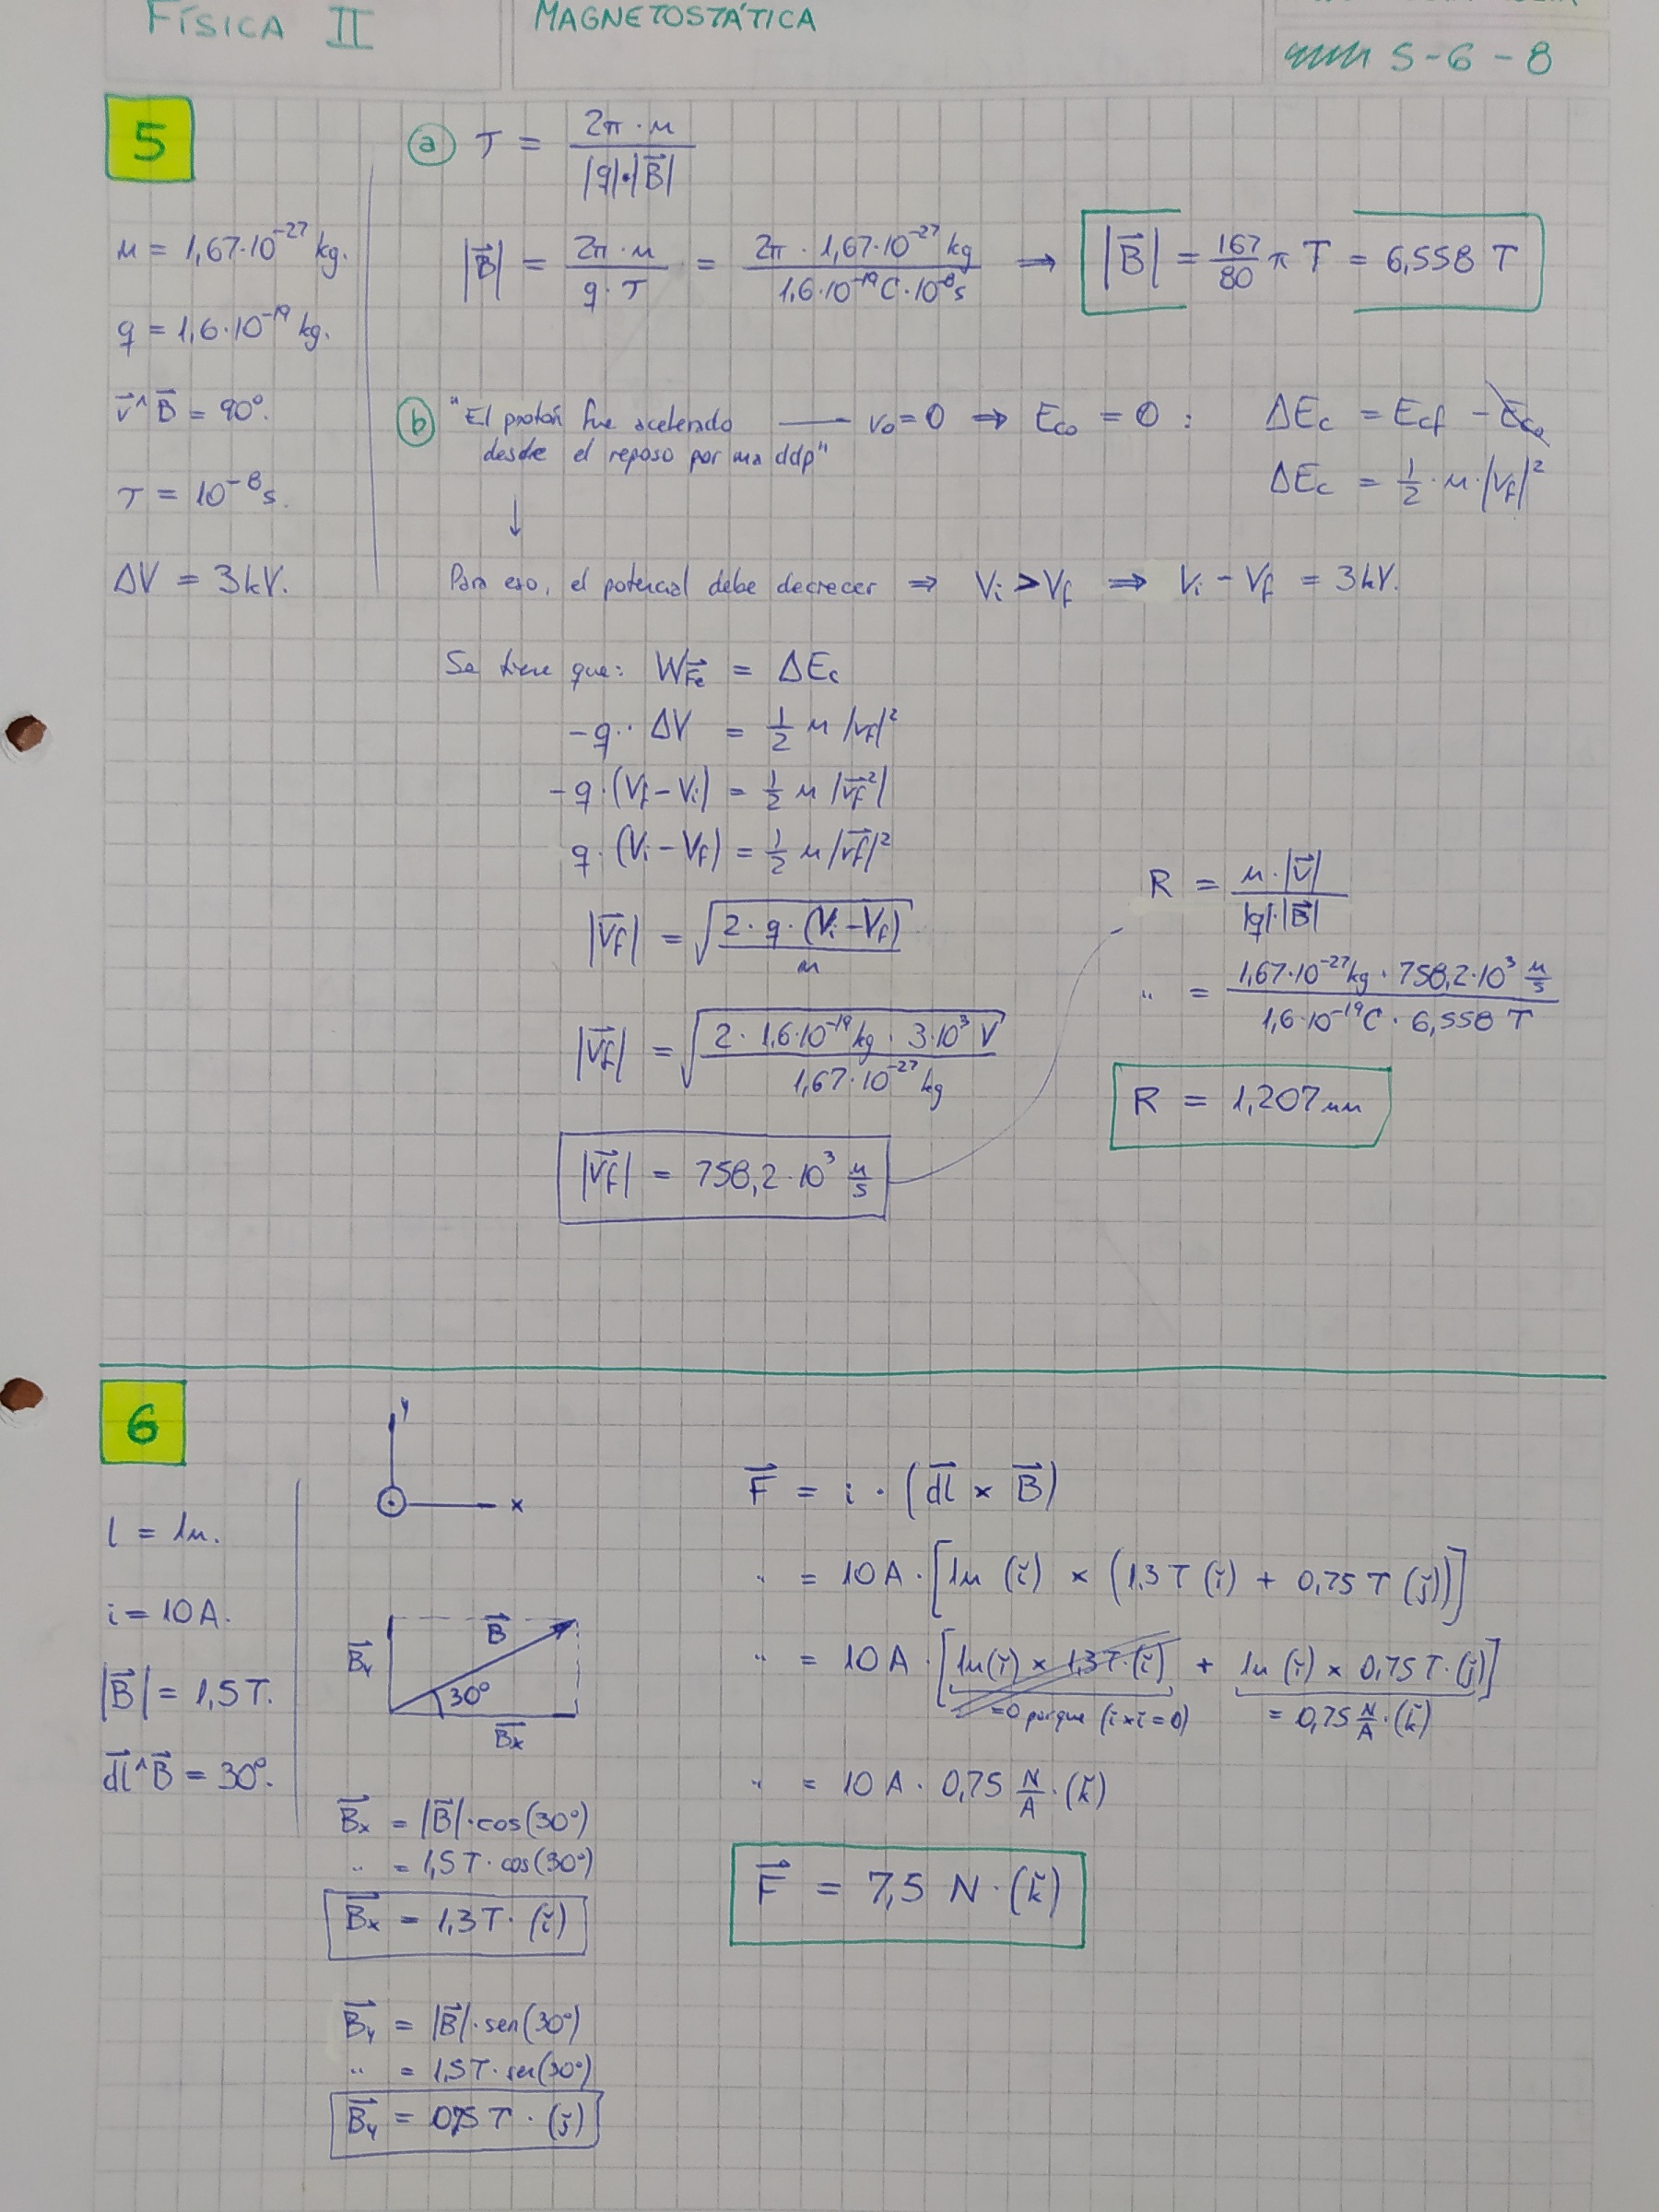 FÍSICA II
MAGNETOSTÁTICA
5-6-8
5
m = 1,67·10⁻²⁷ kg.
q = 1,6·10⁻¹⁹ kg.
v⃗^B⃗ = 90°.
T = 10⁻⁸ s.
ΔV = 3kV.
a) T = 2π·m / |q|·|B⃗|
|B⃗| = 2π·m / q·T = 2π·1,67·10⁻²⁷ kg / 1,6·10⁻¹⁹C·10⁻⁸s ⇒ |B⃗| = 167/80 π T = 6,558 T
b) "El protón fue acelerado desde el reposo por una ddp" — v₀=0 ⇒ Ec₀ = 0 : ΔEc = Ecf - Ec₀
ΔEc = 1/2·m·|vf|²
↓
Para eso, el potencial debe decrecer ⇒ Vi > Vf ⇒ Vi - Vf = 3kV.
Se tiene que: W F⃗e = ΔEc
-q·ΔV = 1/2 m |vf|²
-q·(Vf-Vi) = 1/2 m |v⃗f²|
q·(Vi-Vf) = 1/2 m |v⃗f|²
|v⃗f| = √(2·q·(Vi-Vf) / m)
|v⃗f| = √(2·1,6·10⁻¹⁹kg·3·10³ V / 1,67·10⁻²⁷ kg)
|v⃗f| = 758,2·10³ m/s
R = m·|v⃗| / |q|·|B⃗|
" = 1,67·10⁻²⁷kg·758,2·10³ m/s / 1,6·10⁻¹⁹C·6,558 T
R = 1,207 mm
6
l = 1m.
i = 10A.
|B⃗| = 1,5T.
dl⃗^B⃗ = 30°.
y
x
B⃗
B⃗y
30°
B⃗x
B⃗x = |B⃗|·cos(30°)
" = 1,5T·cos(30°)
B⃗x = 1,3T·(ĭ)
B⃗y = |B⃗|·sen(30°)
" = 1,5T·sen(30°)
B⃗y = 0,75 T·(j̆)
F⃗ = i·(dl⃗ × B⃗)
" = 10A·[1m (ĭ) × (1,3T (ĭ) + 0,75 T (j̆))]
" = 10A·[1m(ĭ) × 1,3T·(ĭ) + 1m (ĭ) × 0,75 T·(j̆)]
=0 porque (ĭ×ĭ=0) = 0,75 N/A·(k̆)
" = 10A·0,75 N/A·(k̆)
F⃗ = 7,5 N·(k̆)